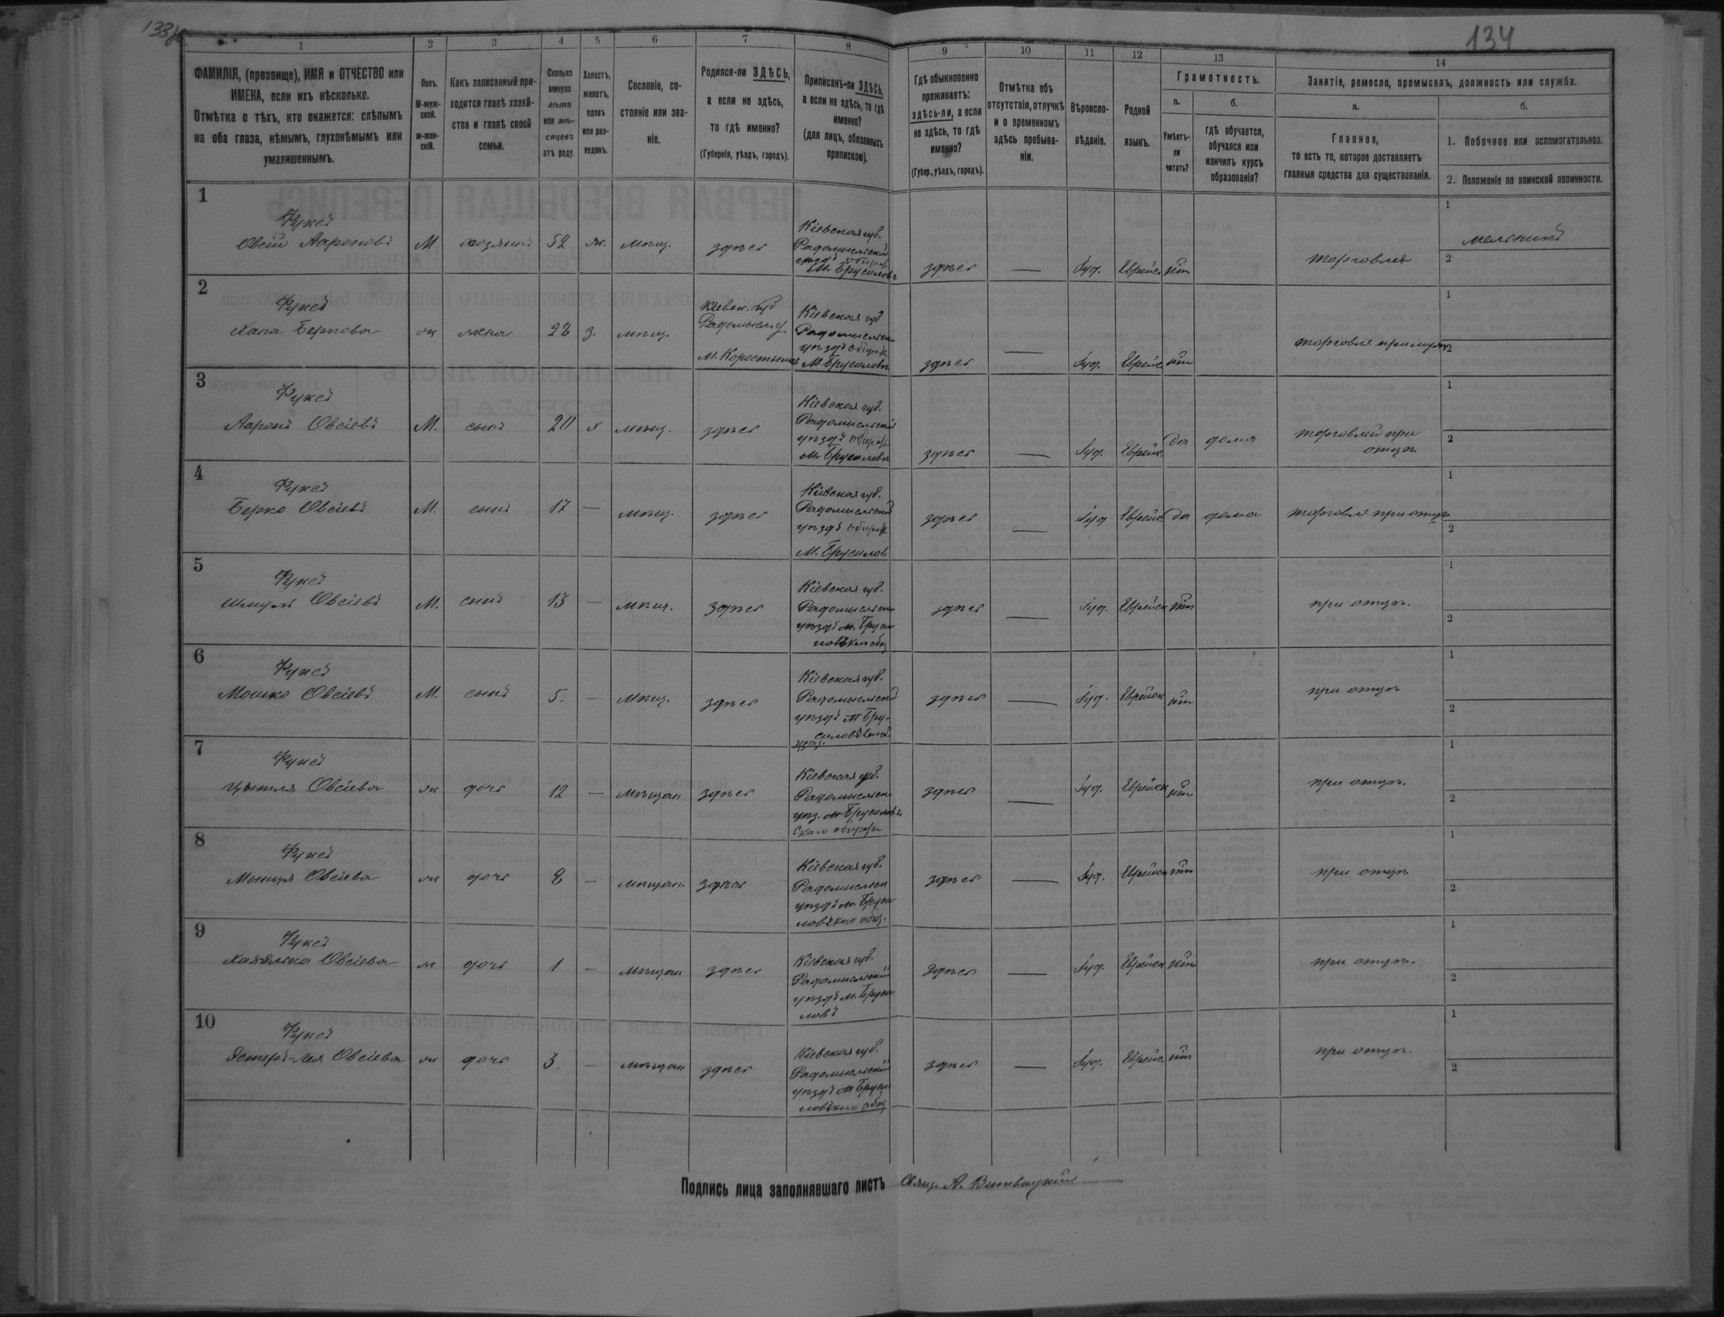 134
1 2 3 4 5 6 7 8 9 10 11 12 13 14
ФАМИЛІЯ, (прозвище), ИМЯ и ОТЧЕСТВО или
ИМЕНА, если ихъ нѣсколько.
Отмѣтка о тѣхъ, кто окажется: слѣпымъ
на оба глаза, нѣмымъ, глухонѣмымъ или
умалишеннымъ.
Полъ.
М-муж-
ской.
ж-жен-
скій.
Какъ записанный при-
ходится главѣ хозяй-
ства и главѣ своей
семьи.
Сколько
минуло
лѣтъ
или мѣ-
сяцевъ
отъ роду.
Холостъ,
женатъ,
вдовъ
или раз-
веденъ.
Сословіе, со-
стояніе или зва-
ніе.
Родился-ли ЗДѢСЬ,
а если не здѣсь,
то гдѣ именно?
(Губернія, уѣздъ, городъ).
Приписанъ-ли ЗДѢСЬ,
а если не здѣсь, то гдѣ
именно?
(для лицъ, обязанныхъ
припискою).
Гдѣ обыкновенно
проживаетъ:
здѣсь-ли, а если
не здѣсь, то гдѣ
именно?
(Губер., уѣздъ, городъ).
Отмѣтка объ
отсутствіи, отлучкѣ
и о временномъ
здѣсь пребыва-
ніи.
Вѣроиспо-
вѣданіе.
Родной
языкъ.
Грамотность.
а.
Умѣетъ-
ли
читать?
б.
гдѣ обучается,
обучался или
кончилъ курсъ
образованія?
Занятіе, ремесло, промыселъ, должность или служба.
а.
Главное,
то есть то, которое доставляетъ
главныя средства для существованія.
б.
1. Побочное или вспомогательное.
2. Положеніе по воинской повинности.
1
Фуксъ
Овсій Ароновъ М хозяинъ 52 ж. мѣщ. здѣсь
Кіевская губ.
Радомысльскій
уѣздъ
М. Брусиловъ
здѣсь — Іуд. Еврейск нѣт торговля
1 мельникъ
2
2
Фуксъ
Хана Беркова ж жена 28 з. мѣщ.
Кіевск. губ
Радомысл. у.
м. Коростышев
Кіевская губ
Радомысльск
уѣздъ
М Брусиловъ
здѣсь — Іуд. Еврейск нѣт торговля при мужѣ
1
2
3
Фуксъ
Ааронъ Овсіевъ М. сынъ 20 х мѣщ. здѣсь
Кіевская губ.
Радомысльскій
уѣздъ
М. Брусиловъ
здѣсь — Іуд. Еврейск да дома
торговлей при
отцѣ
1
2
4
Фуксъ
Берко Овсіевъ М. сынъ 17 — мѣщ. здѣсь
Кіевская губ.
Радомысльскій
уѣздъ
М. Брусилов
здѣсь — Іуд Еврейск да дома торговля при отцѣ
1
2
5
Фуксъ
Шмуль Овсіевъ М. сынъ 15 — мѣщ. здѣсь
Кіевская губ.
Радомысльск
уѣздъ м. Бруси
здѣсь — Іуд. Еврейск нѣт при отцѣ.
1
2
6
Фуксъ
Мошко Овсіевъ М. сынъ 5. — мѣщ. здѣсь
Кіевская губ.
Радомысльскій
уѣздъ М Бру-
здѣсь — Іуд. Еврейск нѣт при отцѣ
1
2
7
Фуксъ
Овсіева ж дочь 12 — мѣщан здѣсь
Кіевская губ.
Радомысльск
уѣз. м Брусиловъ
здѣсь — Іуд. Еврейск нѣт при отцѣ.
1
2
8
Фуксъ
Овсіева ж дочь 8 — мѣщан здѣсь
Кіевская губ.
Радомысльск
уѣздъ м. Бруси
ловско общ.
здѣсь — Іуд. Еврейск нѣт при отцѣ
1
2
9
Фуксъ
Овсіева ж дочь 1 — мѣщан здѣсь
Кіевская губ.
Радомысльскій
уѣздъ м. Бруси
ловъ
здѣсь — Іуд. Еврейск нѣт при отцѣ.
1
2
10
Фуксъ
Эстеръ-Лея Овсіева ж дочь 3. — мѣщан здѣсь
Кіевская губ.
Радомысльскій
уѣздъ м Бруси
здѣсь — Іуд. Еврейск нѣт при отцѣ.
1
2
Подпись лица заполнявшаго листъ Свящ. А.